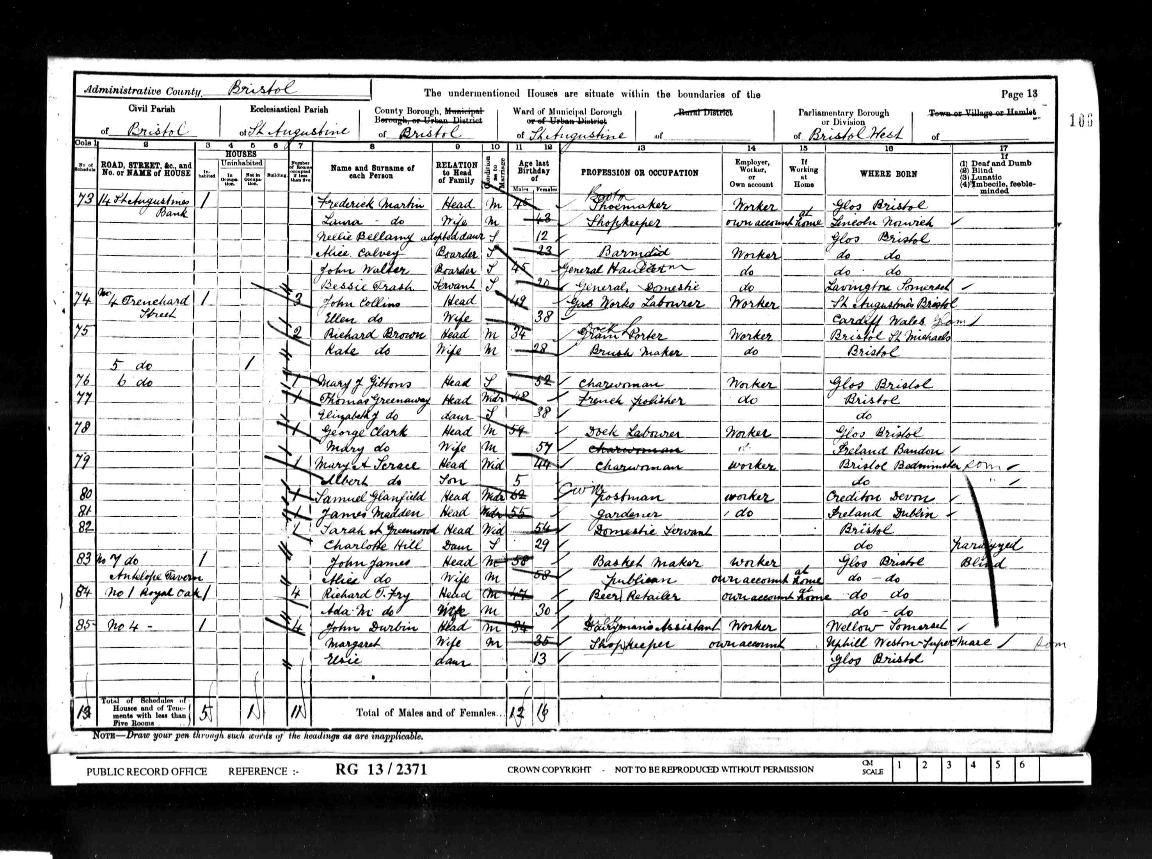 Administrative County, Bristol The undermentioned Houses are situate within the boundaries of the Page 13
166
Civil Parish Ecclesiastical Parish County Borough, Municipal Borough, or Urban District Ward of Municipal Borough or of Urban District Rural District Parliamentary Borough or Division Town or Village or Hamlet
of Bristol of St Augustine of Bristol of St Augustine of of Bristol West of
Cols 1 2 3 4 5 6 7 8 9 10 11 12 13 14 15 16 17
No. of Schedule ROAD, STREET, &c., and No. or NAME of HOUSE HOUSES Inhabited Uninhabited In Occupation. Not in Occupation. Building Number of Rooms occupied if less than five Name and Surname of each Person RELATION to Head of Family Condition as to Marriage Age last Birthday of Males Females PROFESSION OR OCCUPATION Employer, Worker, or Own account If Working at Home WHERE BORN (1) Deaf and Dumb (2) Blind (3) Lunatic (4) Imbecile, feeble-minded
73 14 St Augustines Bank 1 Frederick Martin Head M 45 Shoemaker Worker Glos Bristol
Laura do Wife M 43 Shopkeeper own account at home Lincoln Norwich
Nellie Bellamy adopted daur S 12 Glos Bristol
Alice Calvey Boarder S 23 Barmaid Worker do do
John Walker Boarder S 45 General do do do
Bessie Trash Servant S 20 General, Domestic do Lavington Somerset
74 No 4 Trenchard Street 1 3 John Collins Head 49 Gas Works Labourer Worker St Augustines Bristol
Ellen do Wife 38 Cardiff Wales
75 2 Richard Brown Head M 34 Porter Worker Bristol St Michaels
Kate do Wife M 28 Brush Maker do Bristol
5 do 1
76 6 do 1 Mary J Gibbons Head S 52 Charwoman Worker Glos Bristol
77 1 Thomas Greenaway Head Wdr 48 French Polisher do Bristol
Elizabeth J do daur S 38 do
78 1 George Clark Head M 59 Dock Labourer Worker Glos Bristol
Mary do Wife M 57 Charwoman Ireland Bandon
79 1 Mary A Serace Head Wid 44 Charwoman worker Bristol Bedminster
Albert do Son 5 do
80 1 Samuel Glanfield Head Wdr 62 worker Crediton Devon
81 1 James Madden Head Wdr 55 Gardener do Ireland Dublin
82 1 Sarah A Greenwood Head Wid 54 Domestic Servant Bristol
Charlotte Hill Daur S 29 do Paralyzed
83 No 7 do 1 John James Head M 58 Basket Maker worker Glos Bristol Blind
Antelope Tavern Alice do Wife M 58 Publican own account at home do - do
84 No 1 Royal Oak 1 4 Richard T. Fry Head M 47 Beer Retailer own account at home do do
Ada M do Wife M 30 do - do
85 No 4 - 1 4 John Durbin Head M 34 Dairyman's Assistant Worker Wellow Somerset
Margaret Wife M 35 Shopkeeper own account Uphill Weston-Super-Mare
Elsie daur 13 Glos Bristol
13 Total of Schedules of Houses and of Tenements with less than Five Rooms 5 1 11 Total of Males and of Females... 12 16
NOTE—Draw your pen through such words of the headings as are inapplicable.
PUBLIC RECORD OFFICE REFERENCE :- RG 13 / 2371 CROWN COPYRIGHT - NOT TO BE REPRODUCED WITHOUT PERMISSION CM SCALE 1 2 3 4 5 6